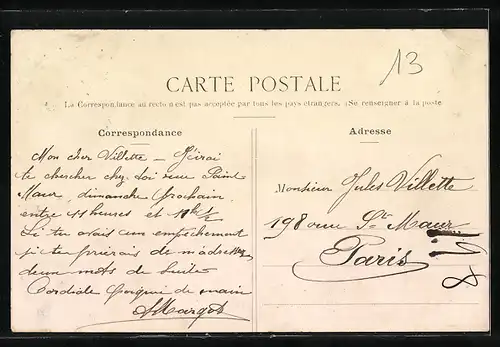 13
CARTE POSTALE
La Correspondance au recto n'est pas acceptée par tous les pays étrangers. (Se renseigner à la poste
Correspondance
Adresse
Mon cher Villette – J'irai
te chercher chez toi rue Saint
Maur, dimanche prochain
entre 11 heures et 11h ½
Si tu avais un empêchement
je te prierais de m'adresser
deux mots de suite
Cordiale poignée de main
AMargot
Monsieur Jules Villette
198 rue St Maur
Paris